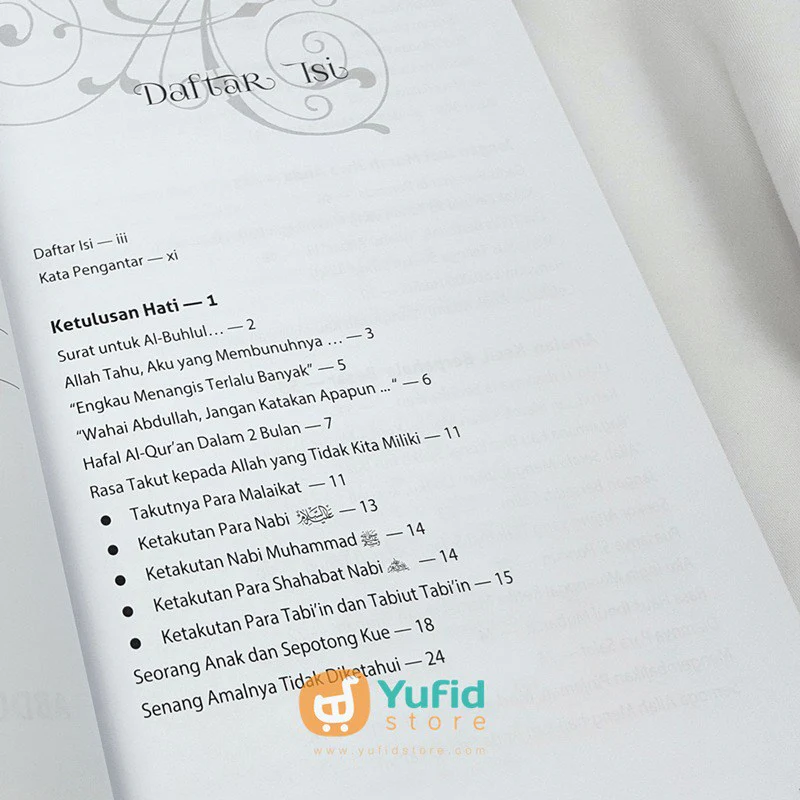 Daftar Isi
Daftar Isi — iii
Kata Pengantar — xi
Ketulusan Hati — 1
Surat untuk Al-Buhlul... — 2
Allah Tahu, Aku yang Membunuhnya ... — 3
“Engkau Menangis Terlalu Banyak” — 5
“Wahai Abdullah, Jangan Katakan Apapun ...“ — 6
Hafal Al-Qur’an Dalam 2 Bulan — 7
Rasa Takut kepada Allah yang Tidak Kita Miliki — 11
● Takutnya Para Malaikat — 11
● Ketakutan Para Nabi — 13
● Ketakutan Nabi Muhammad ﷺ — 14
● Ketakutan Para Shahabat Nabi — 14
● Ketakutan Para Tabi’in dan Tabiut Tabi’in — 15
Seorang Anak dan Sepotong Kue — 18
Senang Amalnya Tidak Diketahui — 24
Yufid
store
www.yufidstore.com